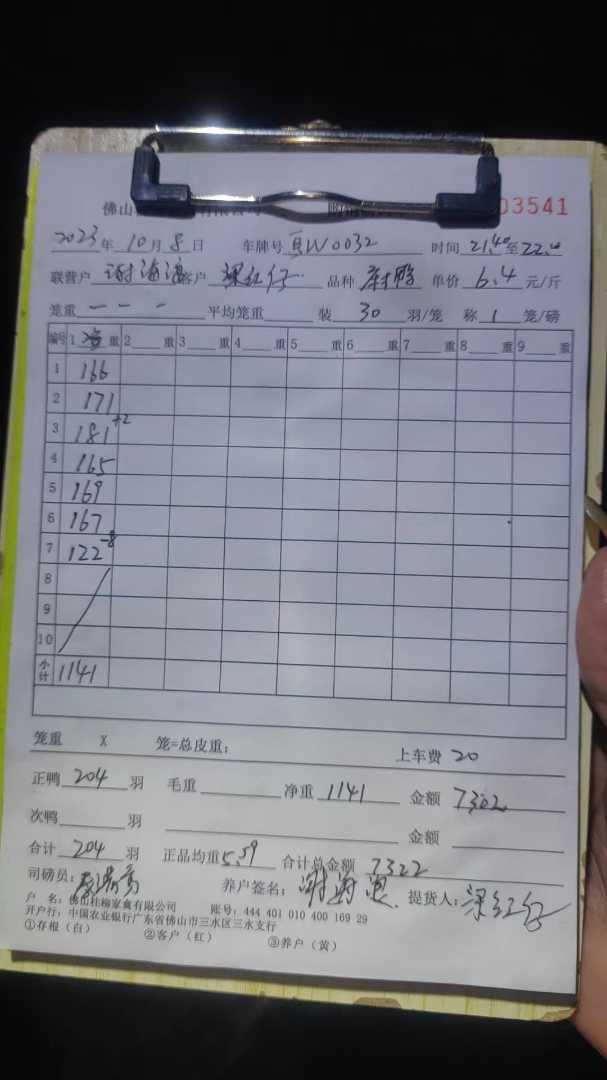 佛山 03541
2023年 10月 8日 车牌号 W0032 时间 21.40至22.
联营户 谢海 客户 梁红仔 品种 单价 6.4 元/斤
笼重 — — — 平均笼重 装 30 羽/笼 称 1 笼/磅
编号 1 重 2 重 3 重 4 重 5 重 6 重 7 重 8 重 9 重
1 166
2 171
3 181 +2
4 165
5 169
6 167
7 122 -8
8
9
10
小计 1141
笼重 X 笼=总皮重: 上车费 20
正鸭 204 羽 毛重 净重 1141 金额 7302
次鸭 羽 金额
合计 204 羽 正品均重 5.59 合计总金额 7322
司磅员: 养户签名: 谢海 提货人: 梁红仔
户 名: 佛山桂柳家禽有限公司 账号: 444 401 010 400 169 29
开户行: 中国农业银行广东省佛山市三水区三水支行
①存根(白) ②客户(红) ③养户(黄)